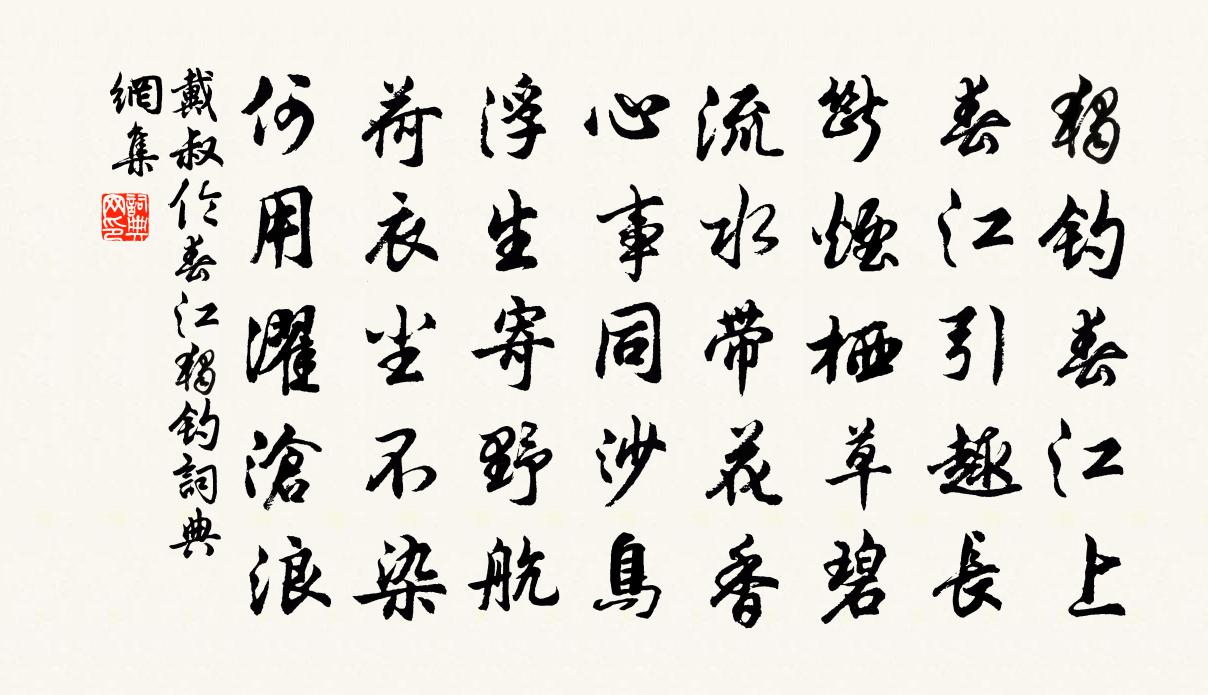 獨钓春江上
春江引趣長
斷煙栖草碧
流水带花香
心事同沙鳥
浮生寄野航
荷衣尘不染
何用濯滄浪
戴叔伦春江獨钓詞典
網集
詞典网印